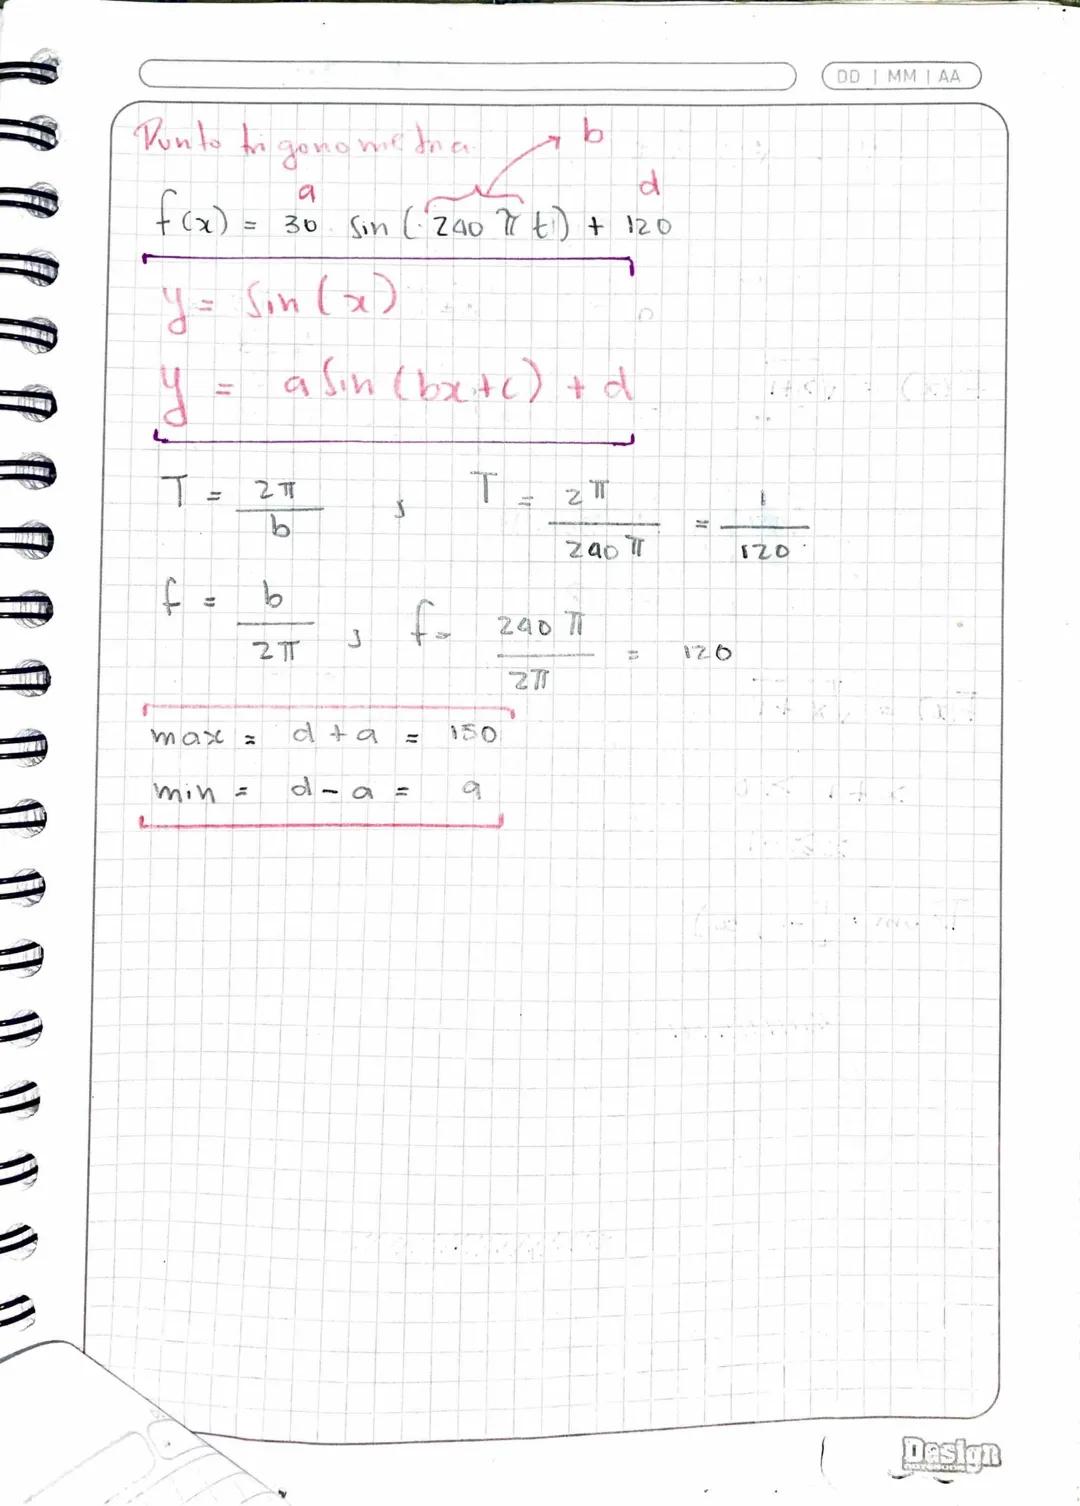 DD | MM | AA
Punto trigonometria
b
a d
f(x) = 30 sin (240 π t) + 120
y = sin (x)
y = a sin (bx+c) + d
T = 2π / b ; T = 2π / 240 π = 1 / 120
f = b / 2π ; f = 240 π / 2π = 120
max = d + a = 150
min = d - a = 9
Design